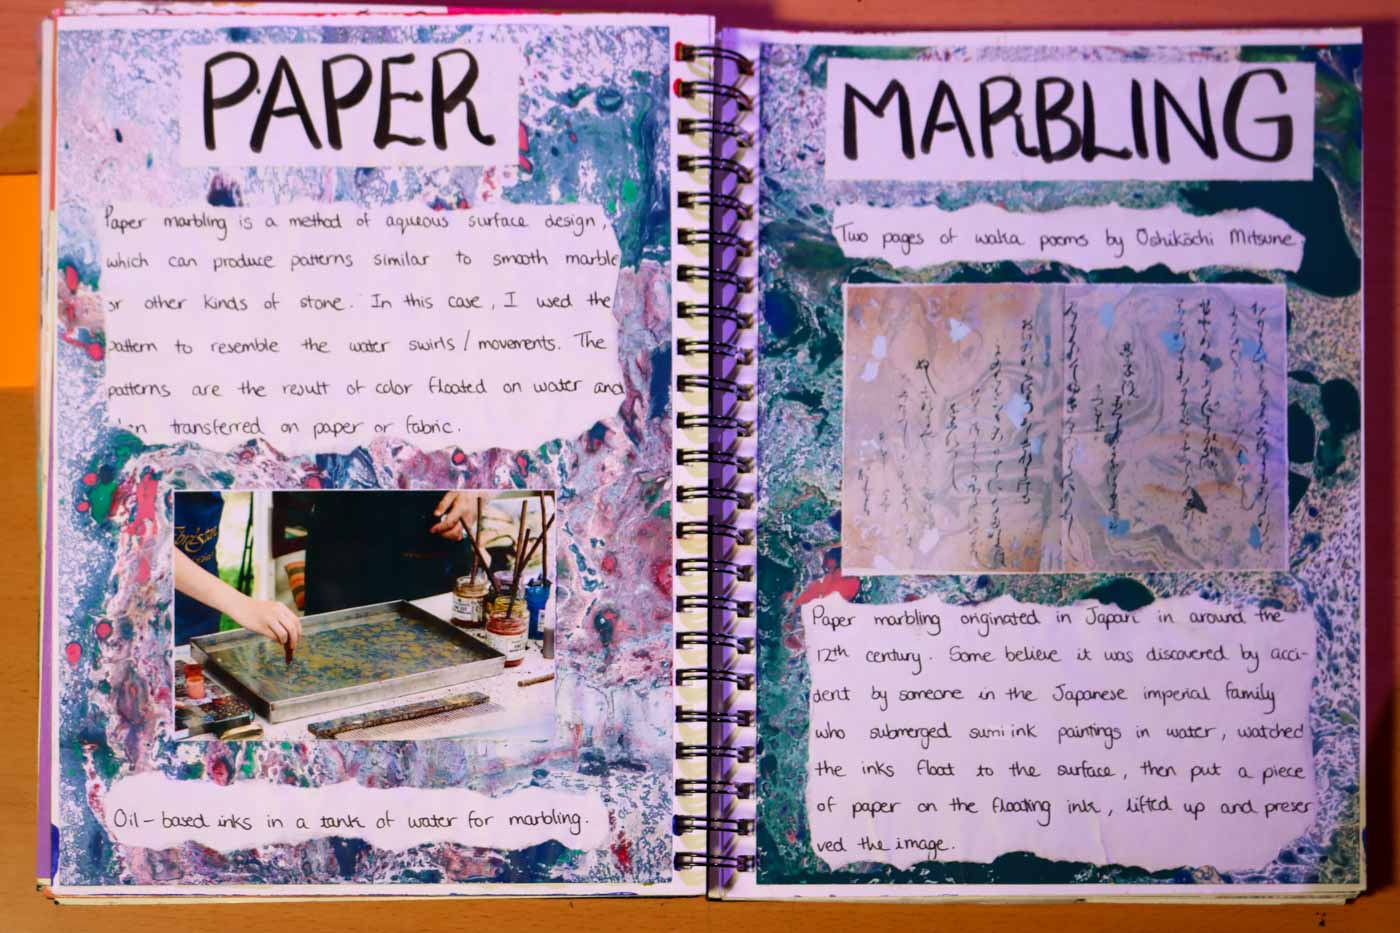 PAPER
Paper marbling is a method of aqueous surface design,
which can produce patterns similar to smooth marble
or other kinds of stone. In this case, I used the
pattern to resemble the water swirls / movements. The
patterns are the result of color floated on water and
transferred on paper or fabric.
Oil-based inks in a tank of water for marbling.
MARBLING
Two pages of waka poems by Oshikōchi Mitsune.
Paper marbling originated in Japan in around the
12th century. Some believe it was discovered by acci-
dent by someone in the Japanese imperial family
who submerged sumi ink paintings in water, watched
the inks float to the surface, then put a piece
of paper on the floating ink, lifted up and preser
ved the image.